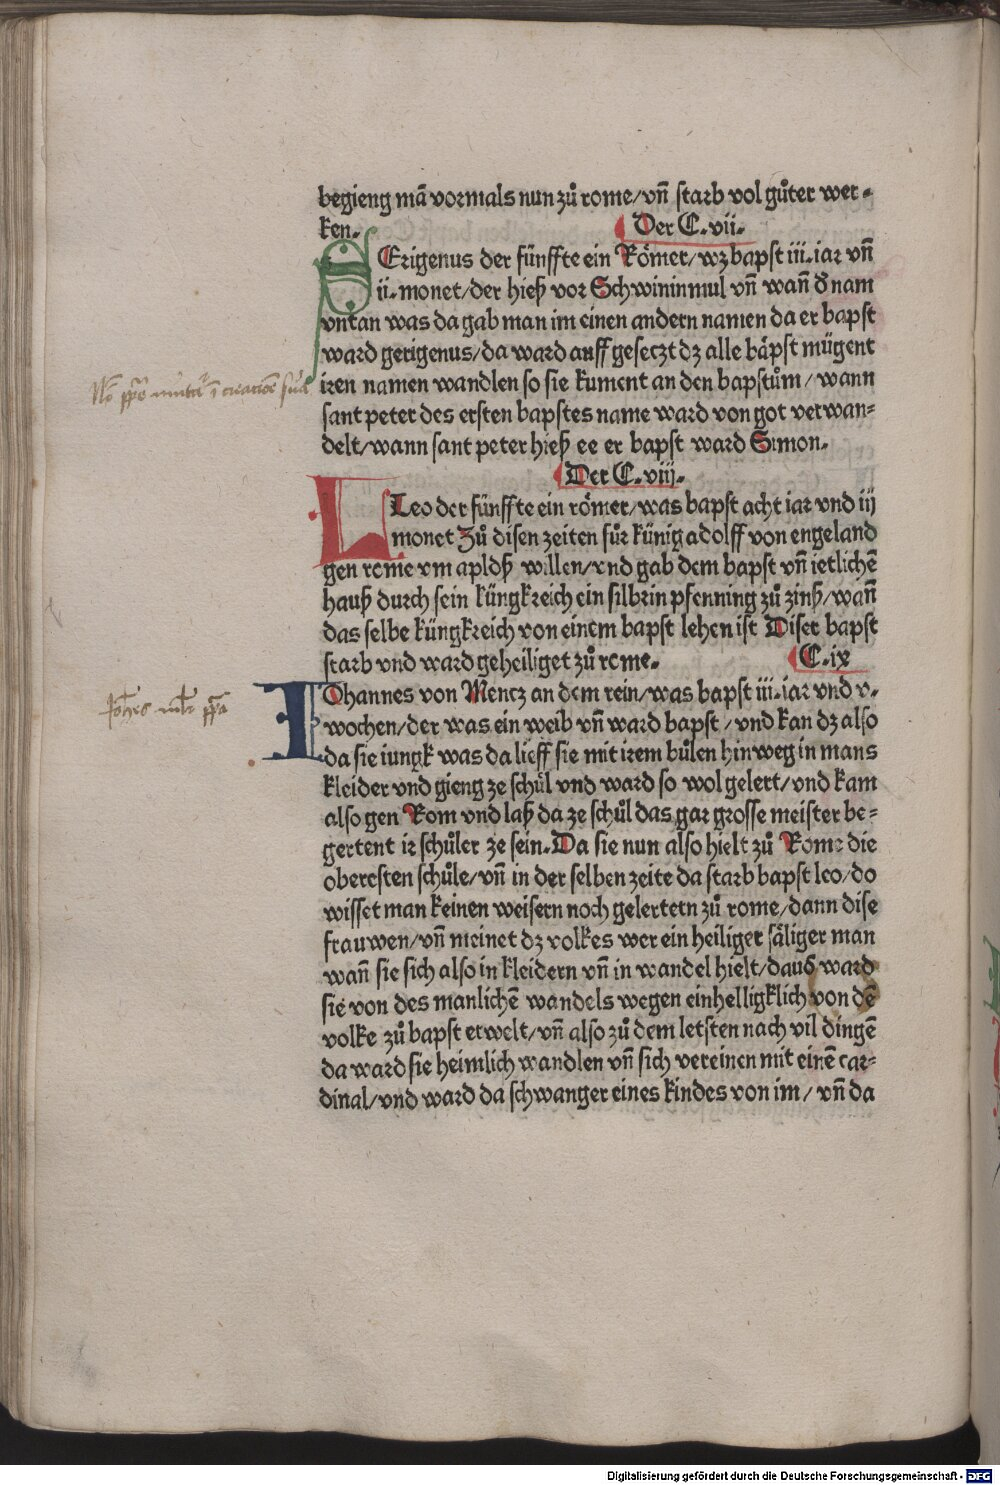 begieng mā vormals nun zů rome/vn̄ starb vol gůter wer-
ken.
Der C.vii.
SErigenus der fünffte ein Römer/wz bapst iii.iar vn̄
ii.monet/der hieß vor Schwininmul vn̄ wan̄ d nam
vntan was da gab man im einen andern namen da er bapst
ward gerigenus/da ward auff geseczt dz alle bäpst mügent
iren namen wandlen so sie kument an den bapstům/wann
sant peter des ersten bapstes name ward von got verwan-
delt/wann sant peter hieß ee er bapst ward Simon.
Der C.viij.
LLeo der fünffte ein römer/was bapst acht iar vnd iij
monet Zů disen zeiten fůr künig adolff von engeland
gen rome vm apldß willen/vnd gab dem bapst vn̄ ietlichē
hauß durch sein küngkreich ein silbrin pfenning zů zinß/wan̄
das selbe küngkreich von einem bapst lehen ist Diser bapst
starb vnd ward geheiliget zů rome.
C.ix
IOhannes von Mencz an dem rein/was bapst iii.iar vnd v.
wochen/der was ein weib vn̄ ward bapst/vnd kan dz also
da sie iungk was da lieff sie mit irem bůlen hinweg in mans
kleider vnd gieng ze schůl vnd ward so wol gelert/vnd kam
also gen Rom vnd laß da ze schůl das gar grosse meister be-
gertent ir schůler ze sein.Da sie nun also hielt zů Rome die
oberesten schůle/vn̄ in der selben zeite da starb bapst leo/do
wisset man keinen weisern noch gelertern zů rome/dann dise
frauwen/vn̄ meinet dz volkes wer ein heiliger säliger man
wan̄ sie sich also in kleidern vn̄ in wandel hielt/daud ward
sie von des manlichē wandels wegen einhelligklich von dē
volke zů bapst erwelt/vn̄ also zů dem letsten nach vil dingē
da ward sie heimlich wandlen vn̄ sich vereinen mit einē car-
dinal/vnd ward da schwanger eines kindes von im/vn̄ da
Digitalisierung gefördert durch die Deutsche Forschungsgemeinschaft - DFG